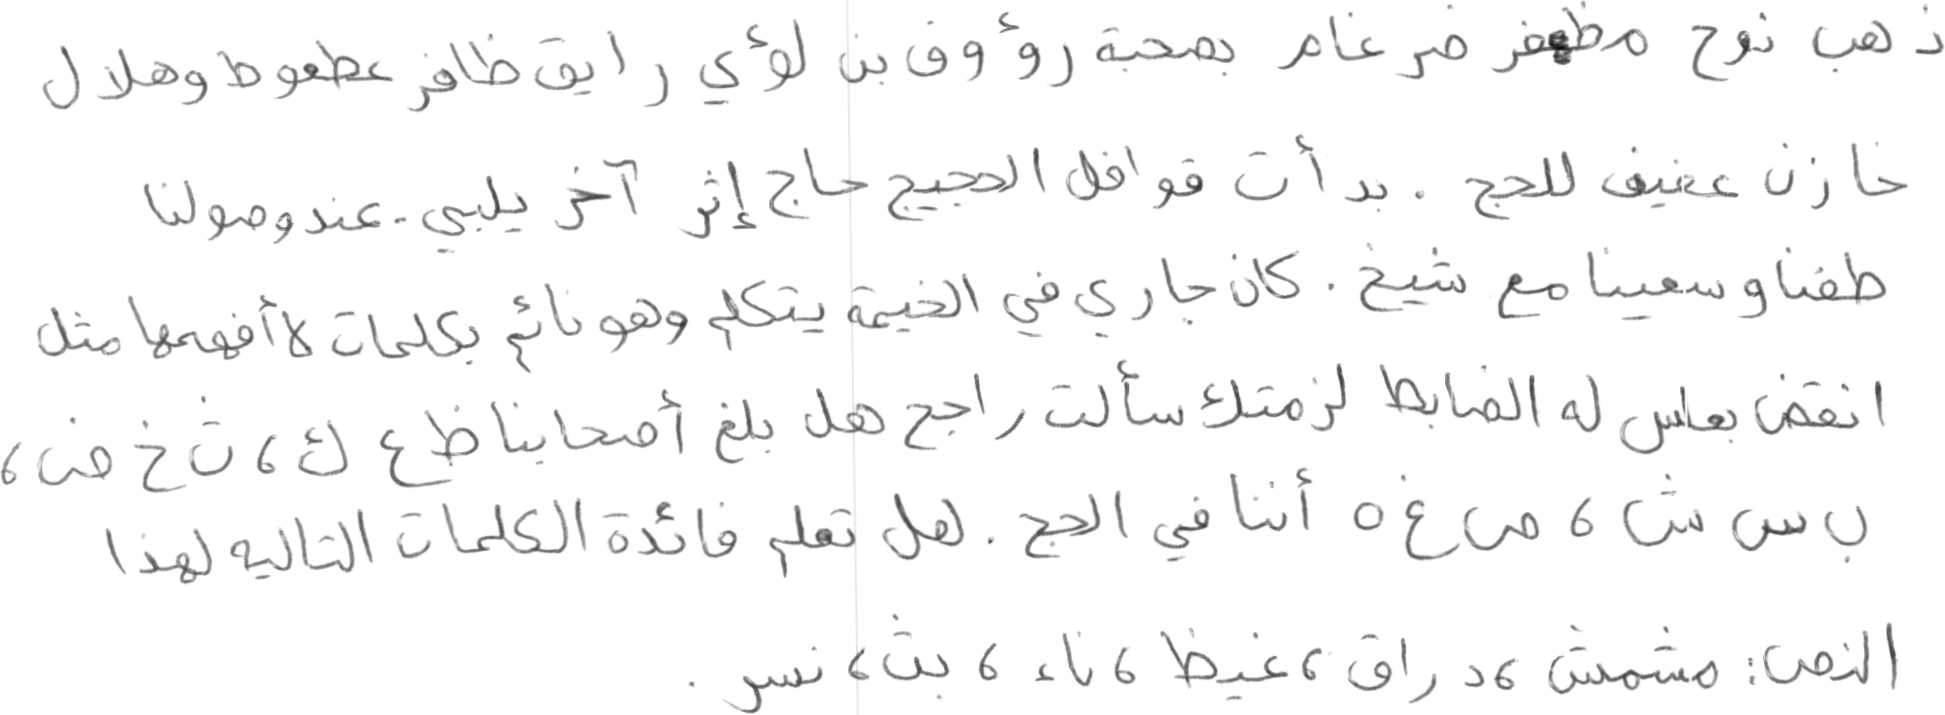 ذهب نوح مظفر ضرغام بصحبة رؤوف بن لؤي رايق ظافر عطعوط وهلال
خازن عفيف للحج . بدأت قوافل الحجيج حاج إثر آخر يلبي . عند وصولنا
طفنا وسعينا مع شيخ . كان جاري في الخيمة يتكلم وهو نائم بكلمات لا أفهمها مثل
انقض بعلس له الضابط لزمتك سألت راجح هل بلغ أصحابنا ظ ع ك ، ث خ ض ،
ب س ش ، ص غ ه أننا في الحج . هل تعلم فائدة الكلمات التاليه لهذا
النص : مشمش ، دراق ، غيظ ، ناء ، بث ، نسر .